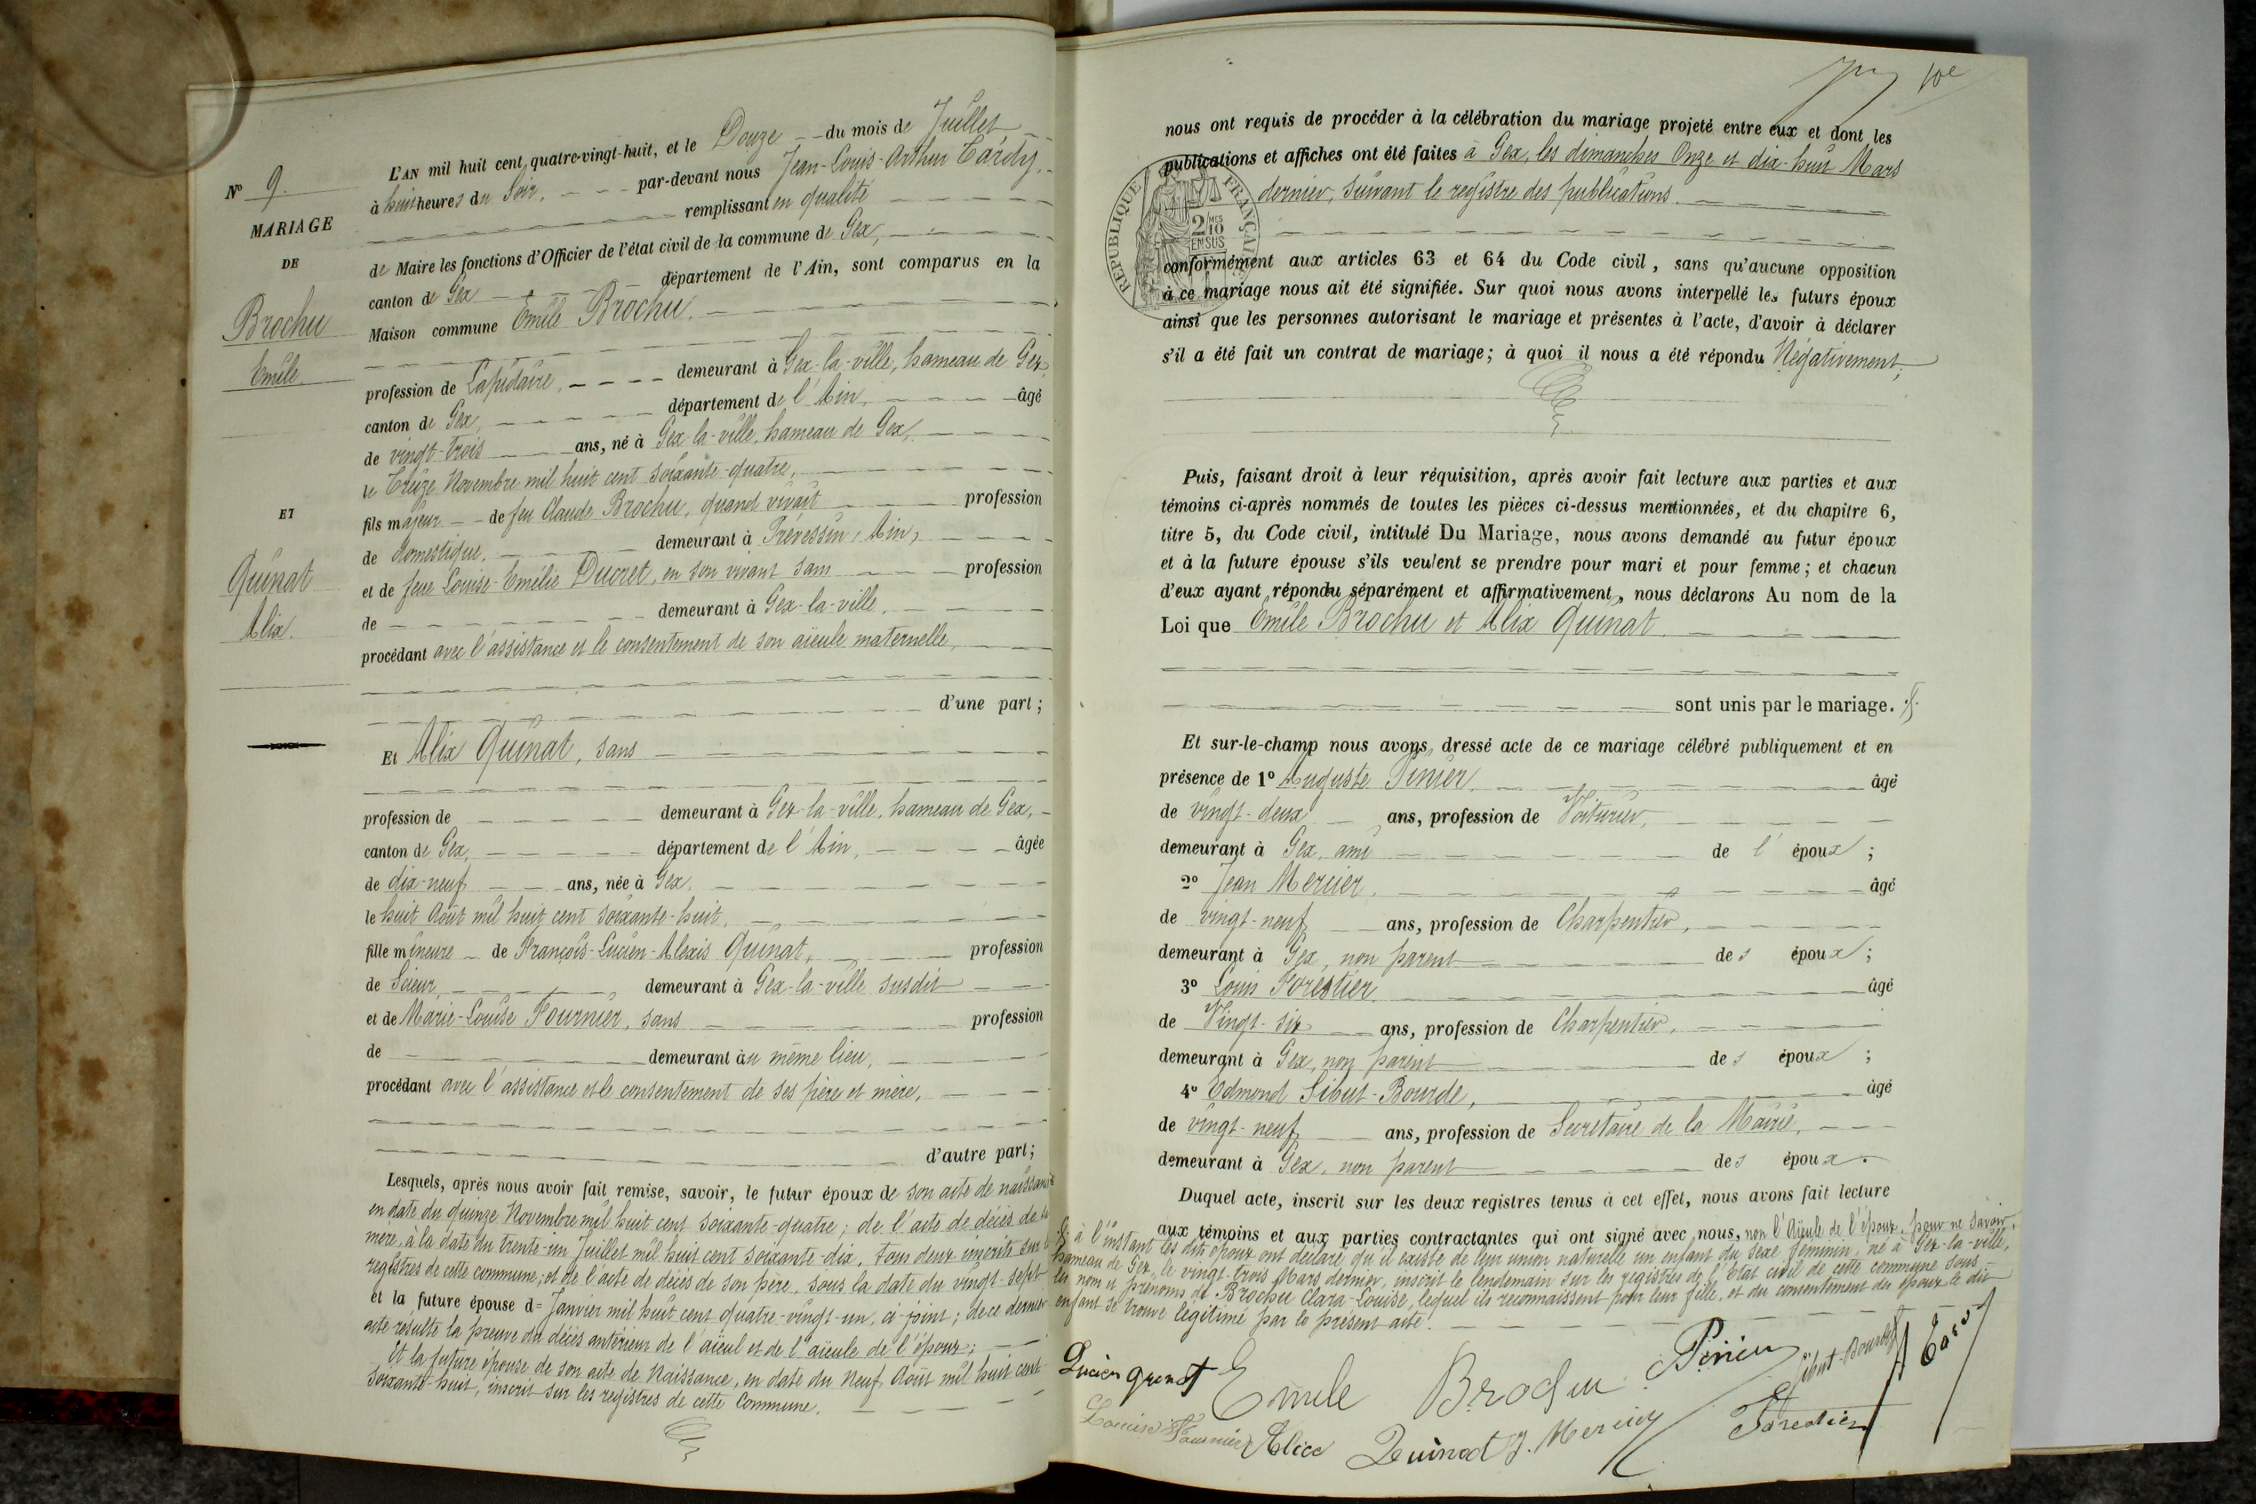 Nº 9.
MARIAGE
DE
Brochu
Emile
ET
Quinat
Alix.
L'AN mil huit cent quatre-vingt-huit, et le Douze du mois de Juillet
à huit heures du Soir, par-devant nous Jean-Louis-Arthur Tardy,
remplissant en qualité
de Maire les fonctions d'Officier de l'état civil de la commune de Gex,
canton de Gex département de l'Ain, sont comparus en la
Maison commune Emile Brochu.
profession de Lapidaire, demeurant à Gex-la-ville, hameau de Gex,
canton de Gex, département de l'Ain, âgé
de vingt-trois ans, né à Gex-la-ville, hameau de Gex,
le Treize Novembre mil huit cent soixante-quatre,
fils majeur de feu Claude Brochu, quand vivait profession
de domestique, demeurant à Prévessin, Ain,
et de feue Louise-Emélie Ducret, en son vivant sans profession
de demeurant à Gex-la-ville,
procédant avec l'assistance et le consentement de son aïeule maternelle,
d'une part ;
Et Alix Quinat, sans
profession de demeurant à Gex-la-ville, hameau de Gex,
canton de Gex, département de l'Ain, âgée
de dix-neuf ans, née à Gex,
le huit Août mil huit cent soixante-huit,
fille mineure de François-Lucien-Alexis Quinat, profession
de Scieur, demeurant à Gex-la-ville susdit
et de Marie-Louise Fournier, sans profession
de demeurant au même lieu,
procédant avec l'assistance et le consentement de ses père et mère,
d'autre part ;
Lesquels, après nous avoir fait remise, savoir, le futur époux de son acte de naissance
en date du quinze Novembre mil huit cent soixante-quatre ; de l'acte de décès de sa
mère, à la date du trente-un Juillet mil huit cent soixante-dix, tous deux inscrits sur les
registres de cette commune ; et de l'acte de décès de son père, sous la date du vingt-sept
et la future épouse d= Janvier mil huit cent quatre-vingt-un, ci-joint ; de ce dernier
acte résulte la preuve du décès antérieur de l'aïeul et de l'aïeule de l'époux ;
Et la future épouse de son acte de Naissance, en date du Neuf Août mil huit cent
soixante-huit, inscrit sur les registres de cette Commune.
10e
nous ont requis de procéder à la célébration du mariage projeté entre eux et dont les
publications et affiches ont été faites à Gex, les dimanches Onze et dix-huit Mars
dernier, suivant le registre des publications.
REPUBLIQUE FRANÇAISE
2/10 EN SUS
conformément aux articles 63 et 64 du Code civil, sans qu'aucune opposition
à ce mariage nous ait été signifiée. Sur quoi nous avons interpellé les futurs époux
ainsi que les personnes autorisant le mariage et présentes à l'acte, d'avoir à déclarer
s'il a été fait un contrat de mariage ; à quoi il nous a été répondu Négativement,
Puis, faisant droit à leur réquisition, après avoir fait lecture aux parties et aux
témoins ci-après nommés de toutes les pièces ci-dessus mentionnées, et du chapitre 6,
titre 5, du Code civil, intitulé Du Mariage, nous avons demandé au futur époux
et à la future épouse s'ils veulent se prendre pour mari et pour femme ; et chacun
d'eux ayant répondu séparément et affirmativement, nous déclarons Au nom de la
Loi que Emile Brochu et Alix Quinat.
sont unis par le mariage.
Et sur-le-champ nous avons dressé acte de ce mariage célébré publiquement et en
présence de 1º Auguste Pinier, âgé
de vingt-deux ans, profession de Voiturier,
demeurant à Gex, ami de l'époux ;
2º Jean Mercier, âgé
de vingt-neuf ans, profession de Charpentier,
demeurant à Gex, non parent des époux ;
3º Louis Forestier âgé
de Vingt-six ans, profession de Charpentier,
demeurant à Gex, non parent des époux ;
4º Edmond Sibut-Bourde, âgé
de vingt-neuf ans, profession de Secrétaire de la Mairie,
demeurant à Gex, non parent des époux.
Duquel acte, inscrit sur les deux registres tenus à cet effet, nous avons fait lecture
aux témoins et aux parties contractantes qui ont signé avec nous, non l'Aïeule de l'époux, pour ne savoir.
Et à l'instant les dits époux ont déclaré qu'il existe de leur union naturelle un enfant du sexe féminin, né à Gex-la-ville,
hameau de Gex, le vingt-trois Mars dernier, inscrit le lendemain sur les registres de l'Etat civil de cette commune sous
les nom et prénoms de Brochu Clara-Louise, lequel ils reconnaissent pour leur fille, et du consentement des époux le dit
enfant se trouve légitimé par le présent acte.
Lucien quinat Emile Brochu Pinier Sibut-Bourde A Tardy
Louise Fournier Alice Quinat J. Mercier Forestier